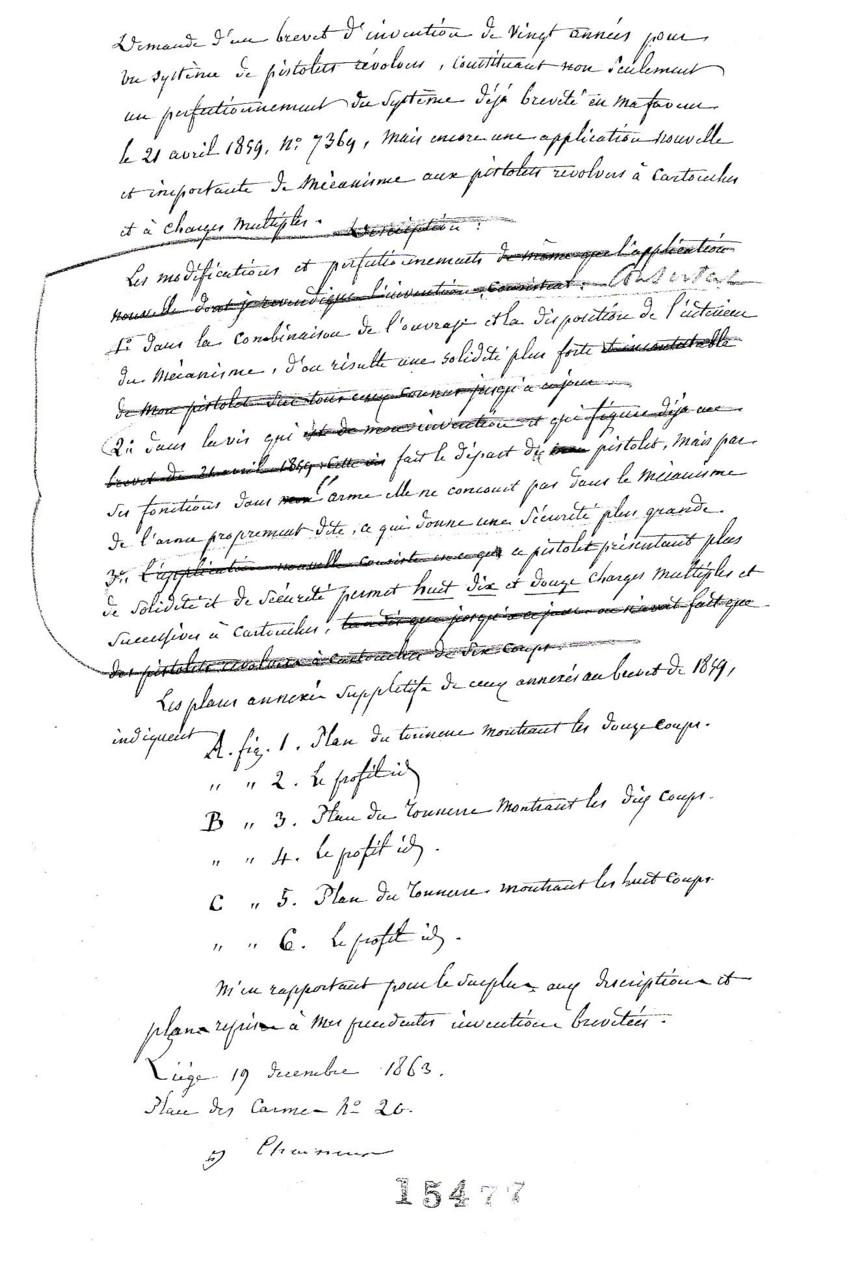 Demande d'un brevet d'invention de vingt années pour
un système de pistolets révolvers, constituant non seulement
un perfectionnement du système déjà breveté en ma faveur
le 21 avril 1859, N° 7369, mais encore une application nouvelle
et importante de mécanisme aux pistolets revolvers à cartouches
et à charges multiples. Description :
Les modifications et perfectionnements de même que l'application
nouvelle dont je revendique l'invention, consistent :
1° dans la combinaison de l'ouvrage et la disposition de l'intérieur
du Mécanisme, d'où résulte une solidité plus forte et incontestable
de mon pistolet sur tous ceux connus jusqu'à ce jour
2° dans la vis qui est de mon invention et qui figure déjà au
brevet du 21 avril 1859, cette vis fait le départ du mon pistolet, mais par
ses fonctions dans mon l'arme elle ne concourt pas dans le Mécanisme
de l'arme proprement dite, ce qui donne une sécurité plus grande.
3° l'application nouvelle consiste en ce que ce pistolet présentant plus
de solidité et de sécurité permet huit dix et douze charges multiples et
successives à cartouches, tandis que jusqu'à ce jour on n'avait fait que
des pistolets revolvers à cartouches de six coups.
Les plans annexés supplétifs de ceux annexés au brevet de 1859,
indiquent A. fig. 1. Plan du tonnerre montrant les douze coups.
" " 2. Le profil id
B " 3. Plan du Tonnerre montrant les dix coups.
" " 4. Le profil id.
C " 5. Plan du Tonnerre montrant les huit coups.
" " 6. Le profil id.
M'en rapportant pour le surplus aux descriptions et
plans repris à mes précédentes inventions brevetées.
Liége 19 decembre 1863.
Place des Carmes N° 20.
15477